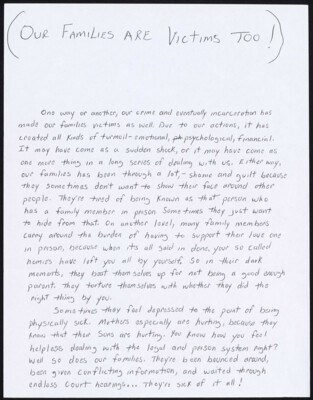 (OUR FAMILIES ARE VICTIMS TOO!)
One way or another, our crime and eventually incarceration has
made our families victims as well. Due to our actions, it has
created all kinds of turmoil - emotional, psychological, financial.
It may have come as a sudden shock, or it may have come as
one more thing in a long series of dealing with us. Either way,
our families has been through a lot, - shame and guilt because
they sometimes don't want to show their face around other
people. They're tired of being known as that person who
has a family member in prison. Sometimes they just want
to hide from that. On another level, many family members
carry around the burden of having to support their love one
in prison, because when its all said in done, your so called
homies have left you all by yourself. So in their dark
moments, they beat themselves up for not being a good enough
parent. They torture themselves with whether they did the
right thing by you.
Sometimes they feel depressed to the point of being
physically sick. Mothers especially are hurting, because they
know that their sons are hurting. You know how you feel
helpless dealing with the legal and prison system right?
Well so does our families. They're been bounced around,
been given conflicting information, and waited through
endless court hearings... They're sick of it all!